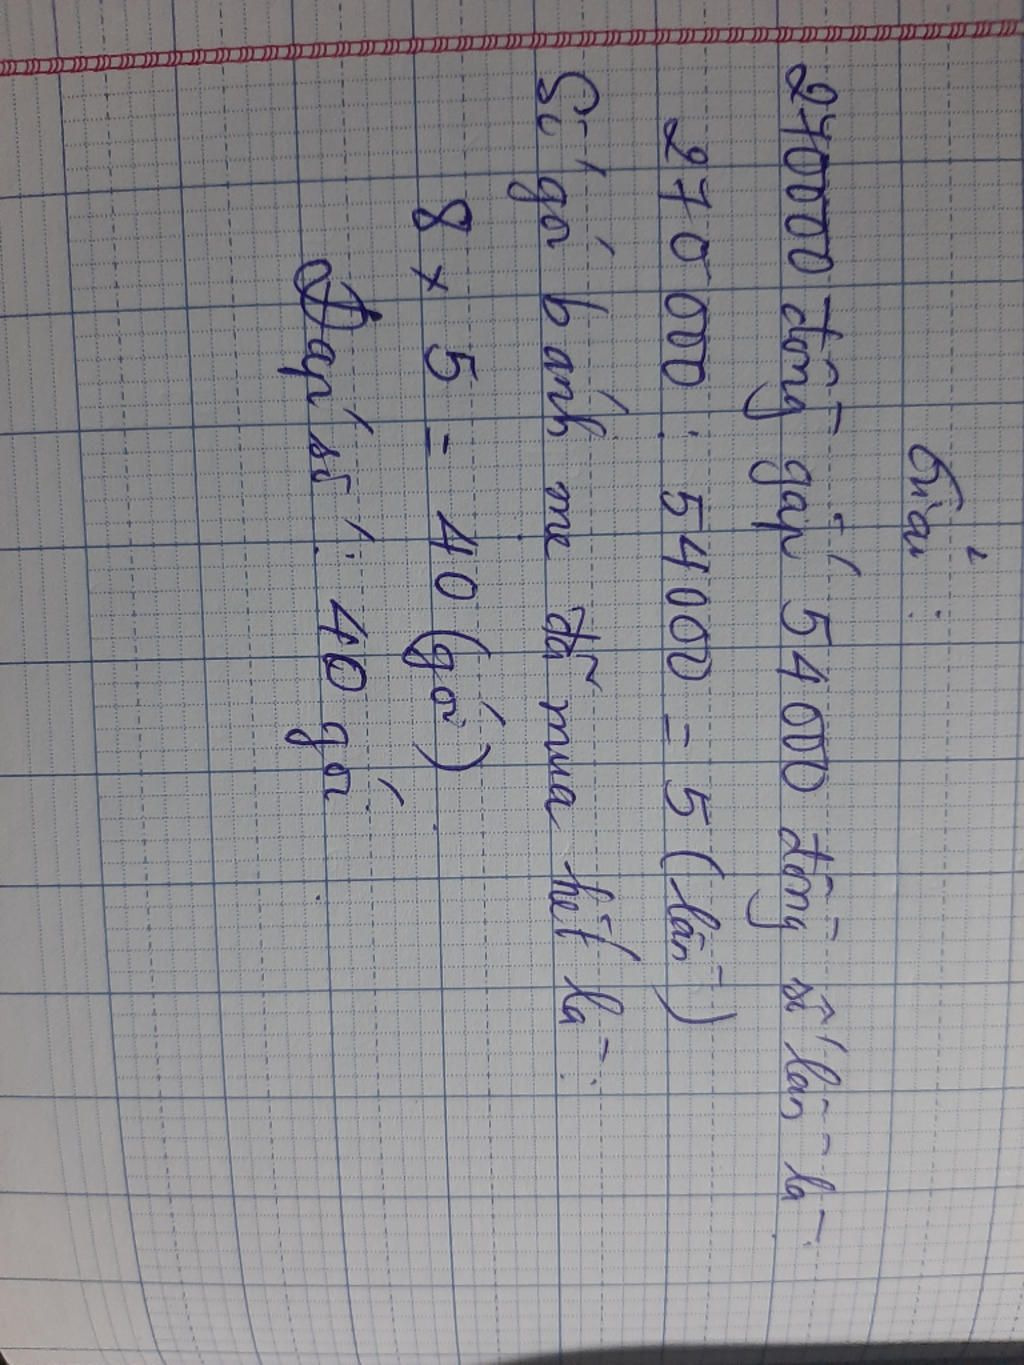 Giải:
270000 đồng gấp 54000 đồng số lần là:
270 000 : 54000 = 5 (lần)
Số gói bánh mẹ đã mua hết là:
8 x 5 = 40 (gói)
Đáp số: 40 gói.